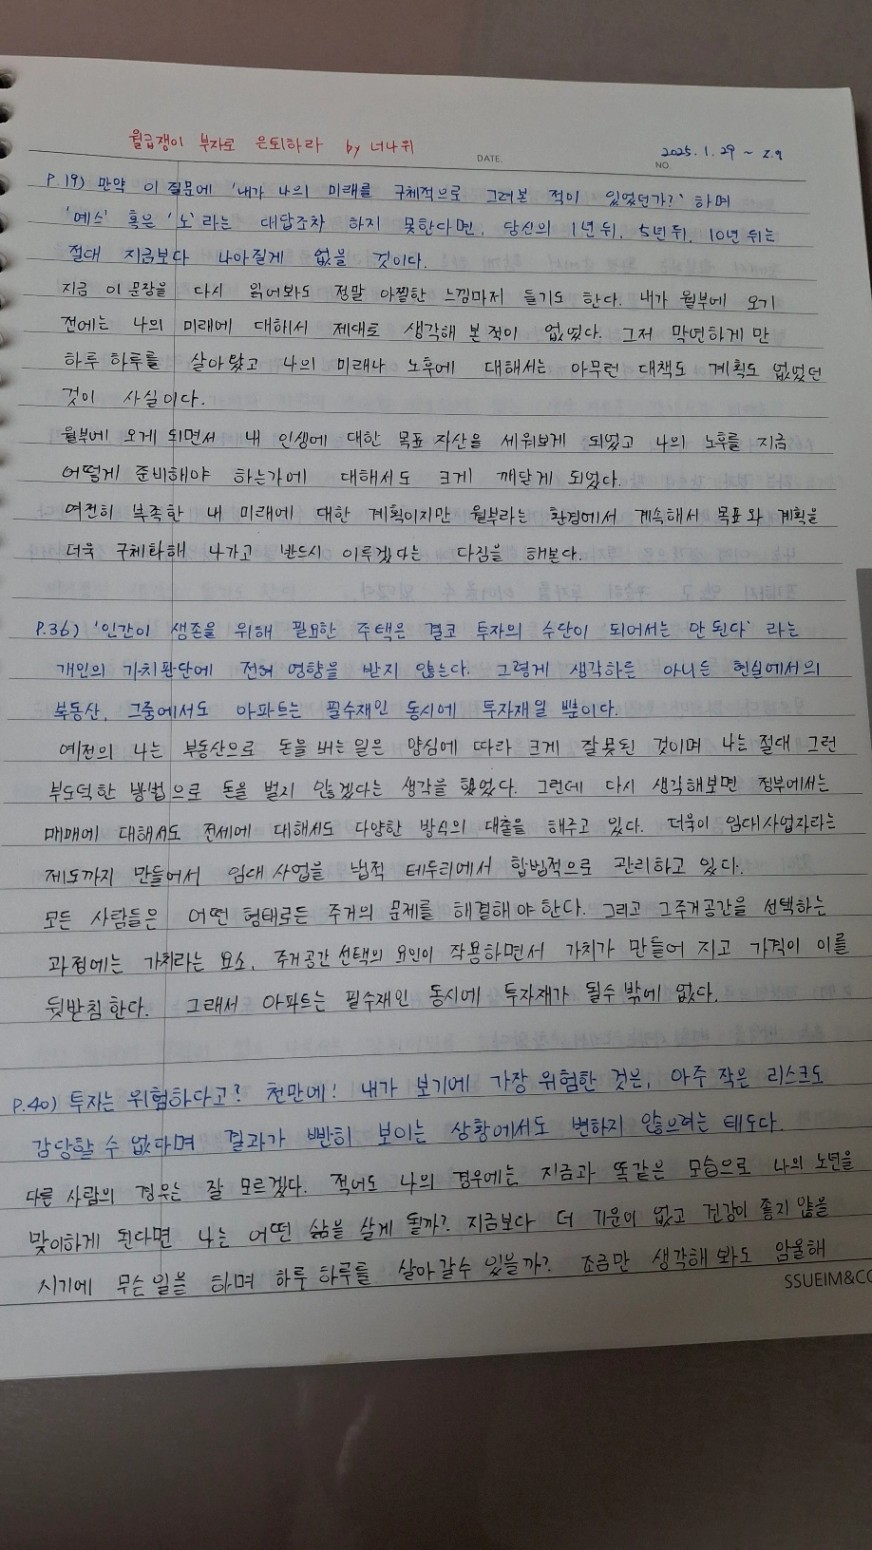 월급쟁이 부자로 은퇴하라 by 너나위
DATE.
2025. 1. 29 ~ 2.9
NO.
P.19) 만약 이 질문에 '내가 나의 미래를 구체적으로 그려본 적이 있었던가?' 하며
'예스' 혹은 '노'라는 대답조차 하지 못한다면, 당신의 1년 뒤, 5년 뒤, 10년 뒤는
절대 지금보다 나아질게 없을 것이다.
지금 이 문장을 다시 읽어봐도 정말 아찔한 느낌마저 들기도 한다. 내가 월부에 오기
전에는 나의 미래에 대해서 제대로 생각해 본 적이 없었다. 그저 막연하게 만
하루 하루를 살아왔고 나의 미래나 노후에 대해서는 아무런 대책도 계획도 없었던
것이 사실이다.
월부에 오게 되면서 내 인생에 대한 목표 자산을 세워보게 되었고 나의 노후를 지금
어떻게 준비해야 하는가에 대해서도 크게 깨닫게 되었다.
여전히 부족한 내 미래에 대한 계획이지만 월부라는 환경에서 계속해서 목표와 계획을
더욱 구체화해 나가고 반드시 이루겠다는 다짐을 해본다.
P.36) '인간이 생존을 위해 필요한 주택은 결코 투자의 수단이 되어서는 안 된다' 라는
개인의 가치판단에 전혀 영향을 받지 않는다. 그렇게 생각하든 아니든 현실에서의
부동산, 그중에서도 아파트는 필수재인 동시에 투자재일 뿐이다.
예전의 나는 부동산으로 돈을 버는 일은 양심에 따라 크게 잘못된 것이며 나는 절대 그런
부도덕한 방법으로 돈을 벌지 않겠다는 생각을 했었다. 그런데 다시 생각해보면 정부에서는
매매에 대해서도 전세에 대해서도 다양한 방식의 대출을 해주고 있다. 더욱이 임대사업자라는
제도까지 만들어서 임대 사업을 법적 테두리에서 합법적으로 관리하고 있다.
모든 사람들은 어떤 형태로든 주거의 문제를 해결해야 한다. 그리고 그 주거공간을 선택하는
과정에는 가치라는 요소, 주거공간 선택의 요인이 작용하면서 가치가 만들어 지고 가격이 이를
뒷받침 한다. 그래서 아파트는 필수재인 동시에 투자재가 될수 밖에 없다.
P.40) 투자는 위험하다고? 천만에! 내가 보기에 가장 위험한 것은, 아주 작은 리스크도
감당할 수 없다며 결과가 뻔히 보이는 상황에서도 변하지 않으려는 태도다.
다른 사람의 경우는 잘 모르겠다. 적어도 나의 경우에는 지금과 똑같은 모습으로 나의 노년을
맞이하게 된다면 나는 어떤 삶을 살게 될까? 지금보다 더 기운이 없고 건강이 좋지 않을
시기에 무슨 일을 하며 하루 하루를 살아갈수 있을까? 조금만 생각해 봐도 암울해
SSUEIM&CO